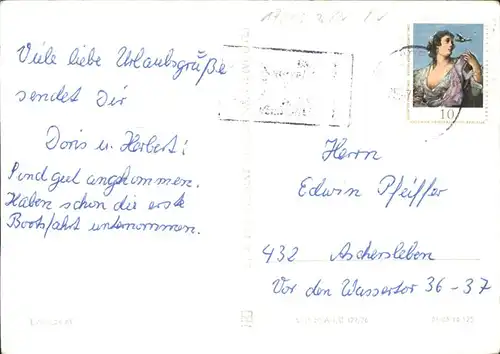 Viele liebe Urlaubsgrüße
sendet Dir
Doris u. Herbert!
Sind gut angekommen.
Haben schon die erste
Bootsfahrt unternommen.
10
Herrn
Edwin Pfeiffer
432 Aschersleben
Vor den Wassertor 36-37